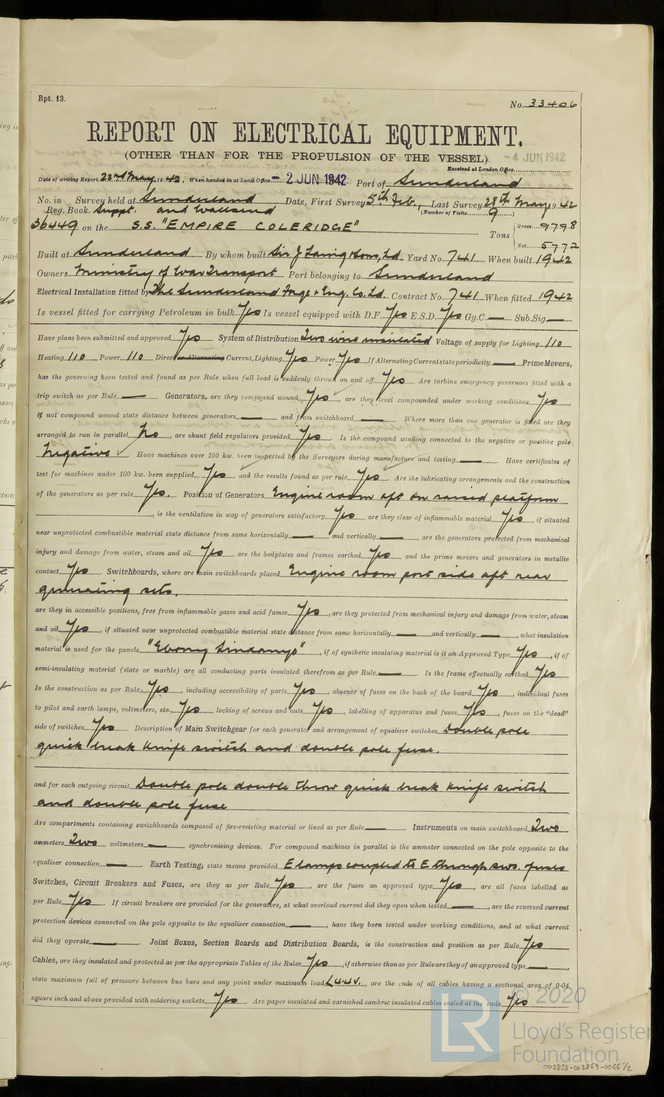 Rpt. 13.
No. 33406
REPORT ON ELECTRICAL EQUIPMENT.
(OTHER THAN FOR THE PROPULSION OF THE VESSEL)
- 4 JUN 1942
Received at London Office
Date of writing Report 22nd May 1942. When handed in at Local Office - 2 JUN 1942 Port of Sunderland
No. in Survey held at Sunderland Date, First Survey 5th Feb., Last Survey 28th May 1942
Reg. Book. Suppt. and Wallsend (Number of Visits 9)
36449 on the S.S. "EMPIRE COLERIDGE" Tons { Gross 9798
Net 5772
Built at Sunderland By whom built Sir J Laing & Sons, Ld. Yard No. 741 When built 1942
Owners Ministry of War Transport Port belonging to Sunderland
Electrical Installation fitted by The Sunderland Forge & Eng. Co. Ld. Contract No. 741 When fitted 1942
Is vessel fitted for carrying Petroleum in bulk Yes Is vessel equipped with D.F. Yes E.S.D. Yes Gy.C. — Sub.Sig. —
Have plans been submitted and approved Yes System of Distribution Two wire insulated Voltage of supply for Lighting 110
Heating 110 Power 110 Direct or Alternating Current, Lighting Yes Power Yes If Alternating Current state periodicity — Prime Movers,
has the governing been tested and found as per Rule when full load is suddenly thrown on and off Yes Are turbine emergency governors fitted with a
trip switch as per Rule — Generators, are they compound wound Yes, are they level compounded under working conditions Yes,
if not compound wound state distance between generators — and from switchboard — Where more than one generator is fitted are they
arranged to run in parallel No, are shunt field regulators provided Yes Is the compound winding connected to the negative or positive pole
Negative Have machines over 100 kw. been inspected by the Surveyors during manufacture and testing — Have certificates of
test for machines under 100 kw. been supplied Yes and the results found as per rule Yes Are the lubricating arrangements and the construction
of the generators as per rule Yes. Position of Generators Engine room aft on raised platform
, is the ventilation in way of generators satisfactory Yes are they clear of inflammable material Yes, if situated
near unprotected combustible material state distance from same horizontally — and vertically —, are the generators protected from mechanical
injury and damage from water, steam and oil Yes, are the bedplates and frames earthed Yes and the prime movers and generators in metallic
contact Yes Switchboards, where are main switchboards placed Engine room port side aft near
generating sets.
are they in accessible positions, free from inflammable gases and acid fumes Yes, are they protected from mechanical injury and damage from water, steam
and oil Yes, if situated near unprotected combustible material state distance from same horizontally — and vertically —, what insulation
material is used for the panels "Ebony Sindanyo", if of synthetic insulating material is it an Approved Type Yes, if of
semi-insulating material (slate or marble) are all conducting parts insulated therefrom as per Rule — Is the frame effectually earthed Yes
Is the construction as per Rule Yes, including accessibility of parts Yes, absence of fuses on the back of the board Yes, individual fuses
to pilot and earth lamps, voltmeters, etc. Yes locking of screws and nuts Yes, labelling of apparatus and fuses Yes, fuses on the "dead"
side of switches Yes Description of Main Switchgear for each generator and arrangement of equaliser switches Double pole
quick break knife switch and double pole fuse.
and for each outgoing circuit Double pole double throw quick break knife switch
and double pole fuse
Are compartments containing switchboards composed of fire-resisting material or lined as per Rule — Instruments on main switchboard Two
ammeters Two voltmeters — synchronising devices. For compound machines in parallel is the ammeter connected on the pole opposite to the
equaliser connection — Earth Testing, state means provided E lamps coupled to E through sws. fuses
Switches, Circuit Breakers and Fuses, are they as per Rule Yes, are the fuses an approved type Yes, are all fuses labelled as
per Rule Yes If circuit breakers are provided for the generators, at what overload current did they open when tested —, are the reversed current
protection devices connected on the pole opposite to the equaliser connection —, have they been tested under working conditions, and at what current
did they operate — Joint Boxes, Section Boards and Distribution Boards, is the construction and position as per Rule Yes
Cables, are they insulated and protected as per the appropriate Tables of the Rules Yes, if otherwise than as per Rule are they of an approved type —,
state maximum fall of pressure between bus bars and any point under maximum load 4.4 V., are the ends of all cables having a sectional area of 0·04
square inch and above provided with soldering sockets Yes Are paper insulated and varnished cambric insulated cables sealed at the ends Yes
© 2020
LR
Lloyd's Register
Foundation
002858-002869-0066 1/2